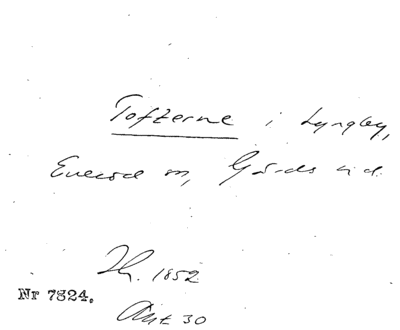 Tofterne i Lyngby,
Everød sn, Gärds hd.
Th. 1852
Nr 7824.
Akt 30